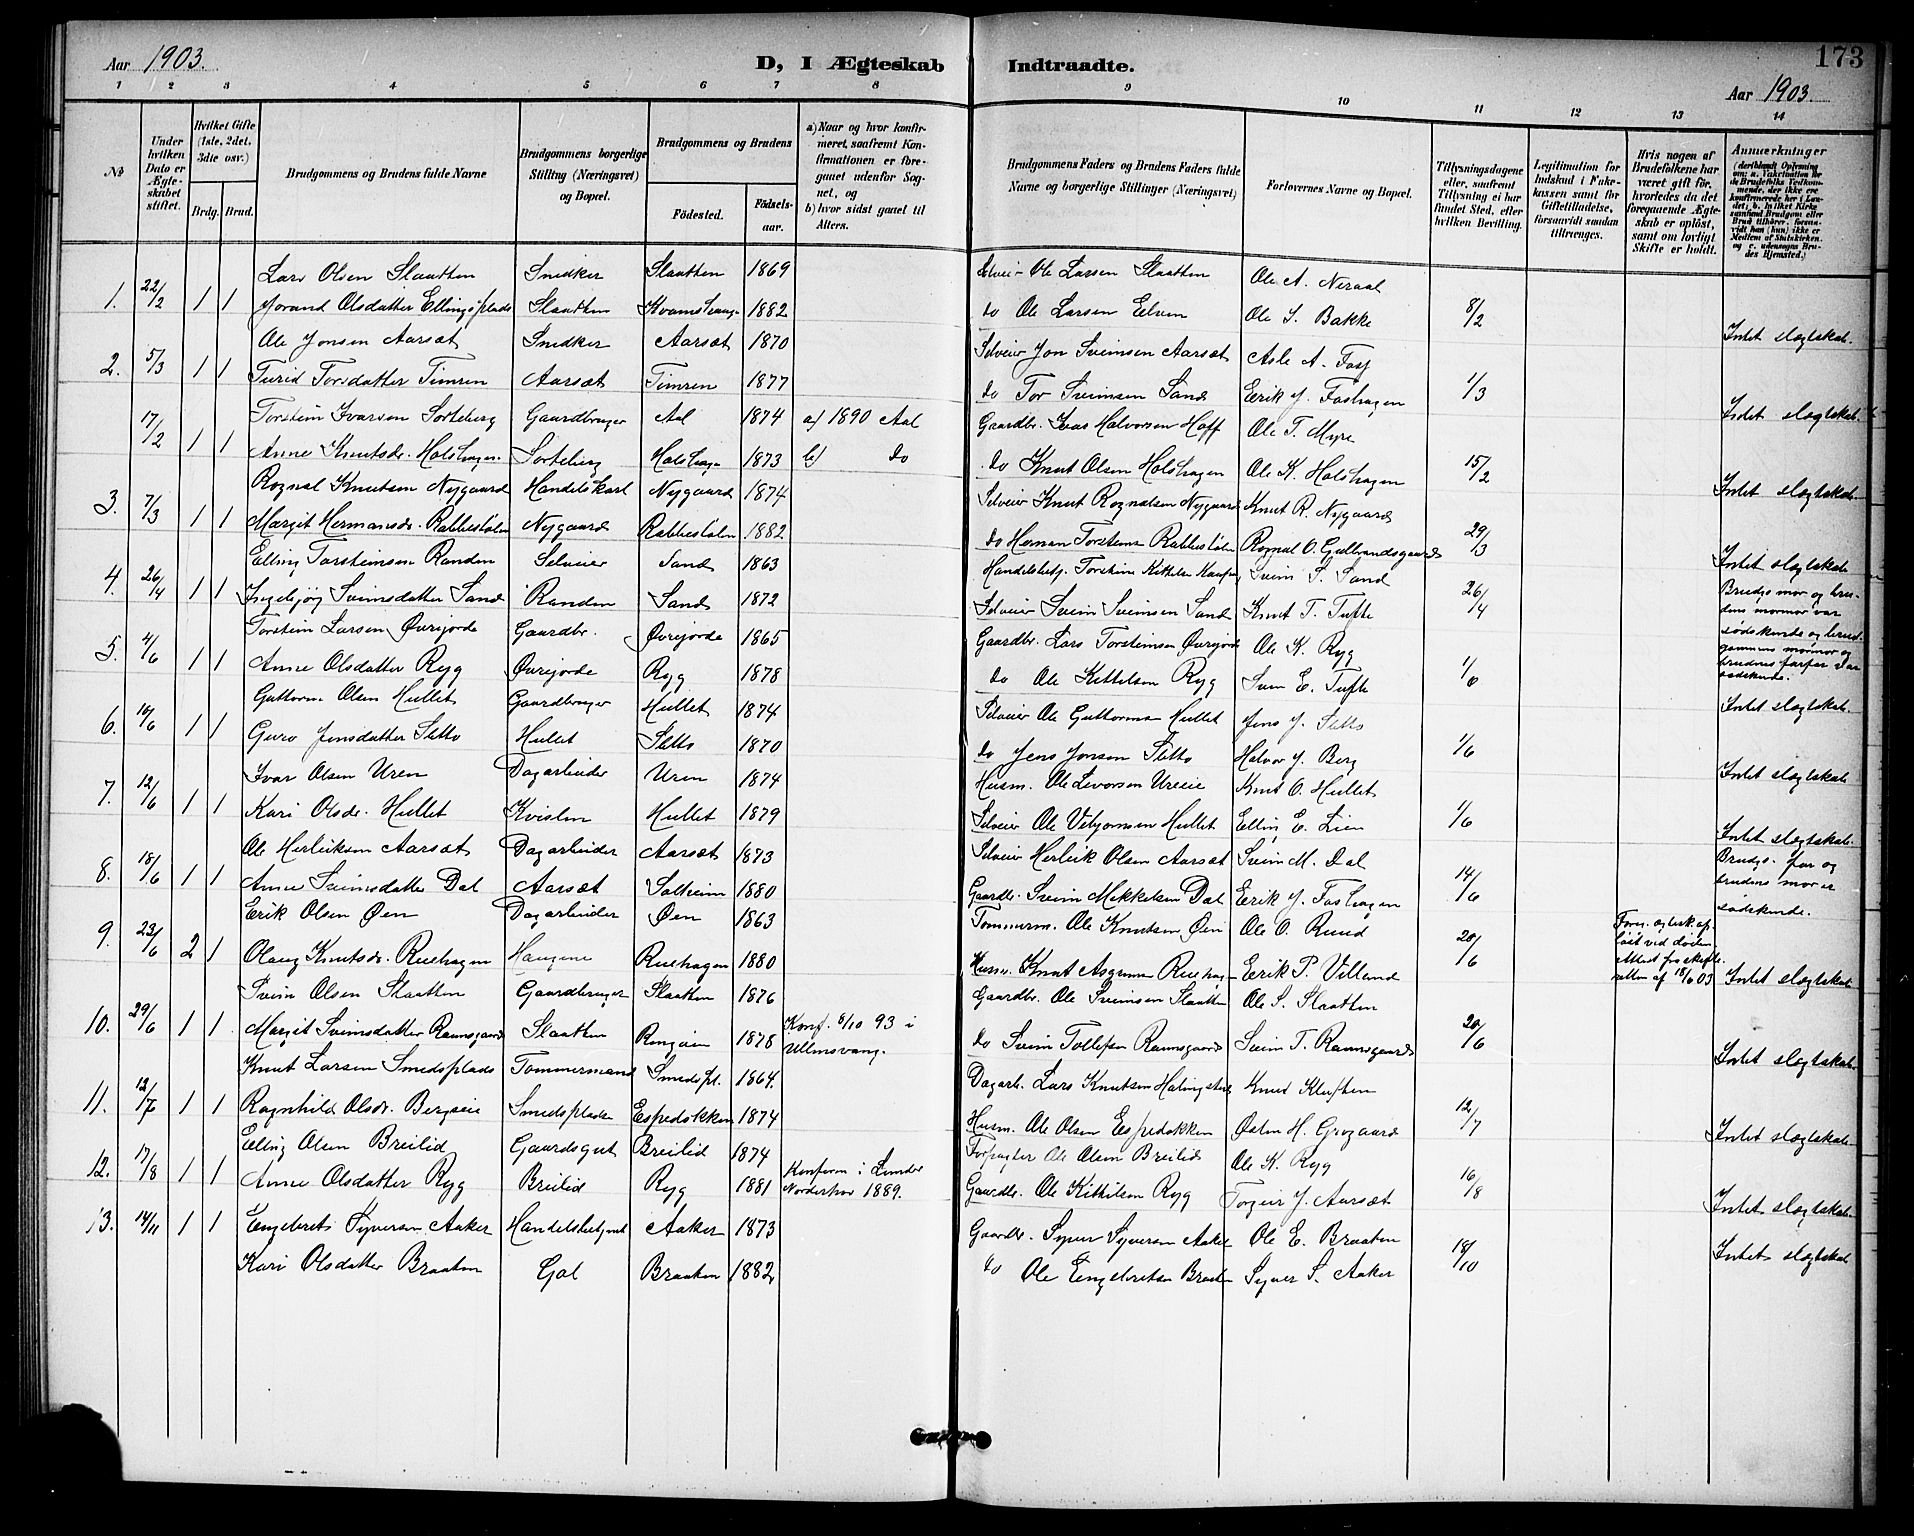 Aar 1903.
D, I Ægteskab Indtraadte.
173
Aar 1903
1 2 3 4 5 6 7 8 9 10 11 12 13 14
No
Under hvilken Dato er Ægteskabet stiftet.
Hvilket Gifte (1ste, 2det, 3die osv.)
Brdg. Brud.
Brudgommens og Brudens fulde Navne
Brudgommens borgerlige Stilling (Næringsvei) og Bopæl.
Brudgommens og Brudens
Fødested. Fødselsaar.
a) Naar og hvor konfirmeret, saafremt Konfirmationen er foregaaet udenfor Sognet, og
b) hvor sidst gaaet til Alters.
Brudgommens Faders og Brudens Faders fulde Navne og borgerlige Stillinger (Næringsvei)
Forlovernes Navne og Bopæl.
Tillysningsdagene eller, saafremt Tillysning ei har fundet Sted, efter hvilken Bevilling.
Legitimation for Indskud i Enkekassen samt for Giftetilladelse, forsaavidt saadan tiltrænges.
Hvis nogen af Brudefolkene har været gift før, hvorledes da det foregaaende Ægteskab er opløst, samt om lovligt Skifte er holdt.
Anmærkninger
1. 22/2 1 1 Lars Olsen Slaatten Snidker Slaatten 1869 Selveier Ole Larsen Slaatten Ole A. Neraal
Jorand Olsdatter Ellingsplads Slaatten 1882 do Ole Larsen Eelven Ole S. Bakke 8/2 Intet slægtskab.
2. 5/3 1 1 Ole Jonsen Aarsæt Snidker Aarsæt 1870 Selveier Jon Sveinsen Aarsæt Asle A.
Turid Torsdatter Timren Aarsæt Timren 1877 do Tor Sveinsen Sand Eerik J. Foshagen 1/3 Intet slægtskab.
17/2 1 1 Torstein Ivarsen Sorteberg Gaardbruger Aal 1874 a) 1890 Aal Gaardbr. Ivar Halvorsen Hoff Ole T. Myre
Anne Knutsdr. Holshagen Sorteberg Holshagen 1873 b) do do Knut Olsen Holshagen Ole K. Holshagen 15/2 Intet slægtskab
3. 7/3 1 1 Rognal Knutsen Nygaard Handelskarl Nygaard 1874 Selveier Knut Rognalsen Nygaard Knut R. Nygaard
Margit Hermansdr. Rabbestølen Nygaard Rabbestølen 1882 do Herman Torsteins Rabbestølen Rognal O. Gulbrandsgaard 29/3 Intet slægtskab
4. 26/4 1 1 Elling Torsteinsen Randen Selveier Sand 1863 Handelsbetj. Torstein Kittilsen Svein S. Sand
Ingebjør Sveinsdatter Sand Randen Sand 1872 Selveier Svein Sveinsen Sand Knut T. Tufte 26/4 Brudgs mor og brudens mormor var sødskende og brudgommens mormor og brudens farfar var sødskende.
5. 4/6 1 1 Torstein Larsen Øvrejorde Gaardbr. Øvrejorde 1865 Gaardbr. Lars Torsteinsen Øvrejord Ole K. Ryg
Anne Olsdatter Ryg Øvrejorde Ryg 1878 do Ole Kittilsen Ryg Svein E. Tufte 1/6 Intet slægtskab.
6. 1 1 Guttorm Olsen Hullet Gaardbruger Hullet 1874 Selveier Ole Guttormsen Hullet Jens J. Sletto
Guro Jensdatter Sletto Hullet Sletto 1870 do Jens Jonsen Sletto Halvor J. Berg 1/6 Intet slægtskab
7. 12/6 1 1 Ivar Olsen Uren Dagarbeider Uren 1874 Husm. Ole Levorsen Knut O. Hullet
Kari Olsdr. Hullet Kvislen Hullet 1879 Selveier Ole Hullet Elling E. Lien 1/6 Intet slægtskab.
8. 18/6 1 1 Ole Herleiksen Aarsæt Dagarbeider Aarsæt 1873 Selveier Herleik Olsen Aarsæt Svein M. Dal
Anne Sveinsdatter Dal Aarsæt Solheim 1880 Gaardbr. Svein Mikkelsen Dal Eerik J. Foshagen 14/6 Brudgs. far og brudens mor er sødskende.
9. 23/6 2 1 Eerik Olsen Øen Dagarbeider Øen 1863 Tømmerm. Ole Knutsen Øen Ole O. Ruud
Olaug Knutsdr. Ruehagen Haugene Ruehagen 1880 Husm. Knut Asgrimsen Ruehagen Eerik P. Villand 20/6 Foreg. ægtesk. opløst ved døden. Attest fra skifteretten af 18/6 03 Intet slægtskab
10. 29/6 1 1 Svein Olsen Slaatten Gaardbruger Slaatten 1876 Gaardbr. Ole Sveinsen Slaatten Ole S. Slaatten
Margit Sveinsdatter Ramsgaard Slaatten 1878 Konf. 8/10 93 i Ullensvang. do Svein Tollefsen Ramsgaard Svein T. Ramsgaard 20/6 Intet slægtskab
11. 12/7 1 1 Knut Larsen Smedsplads Tømmermand Smedspl. 1864. Dagarb. Lars Knutsen Knud Kluften
Ragnhild Olsdr. Bergseie Smedspladsen Espedokken 1874 Husm. Ole Olsen Espedokken Østen H. Grøgaard 12/7 Intet slægtskab
12. 17/8 1 1 Elling Olsen Breilid Gaardsgut Breilid 1874 Forpagter Ole Olsen Breilid Ole K. Ryg
Anne Olsdatter Ryg Breilid Ryg 1881 Konfirm i Lunder Norderhov 1889. Gaardbr. Ole Kittilsen Ryg Torgeir J. Aarsæt 16/8 Intet slægtskab
13. 14/11 1 1 Eengebret Syversen Aaker Handelsbetjent Aaker 1873 Gaardbr. Syver Syversen Aaker Ole E. Braaten
Kari Olsdatter Braaten Gol Braaten 1882 do Ole Eengebretsen Braaten Syver S. Aaker 18/10 Intet slægtskab